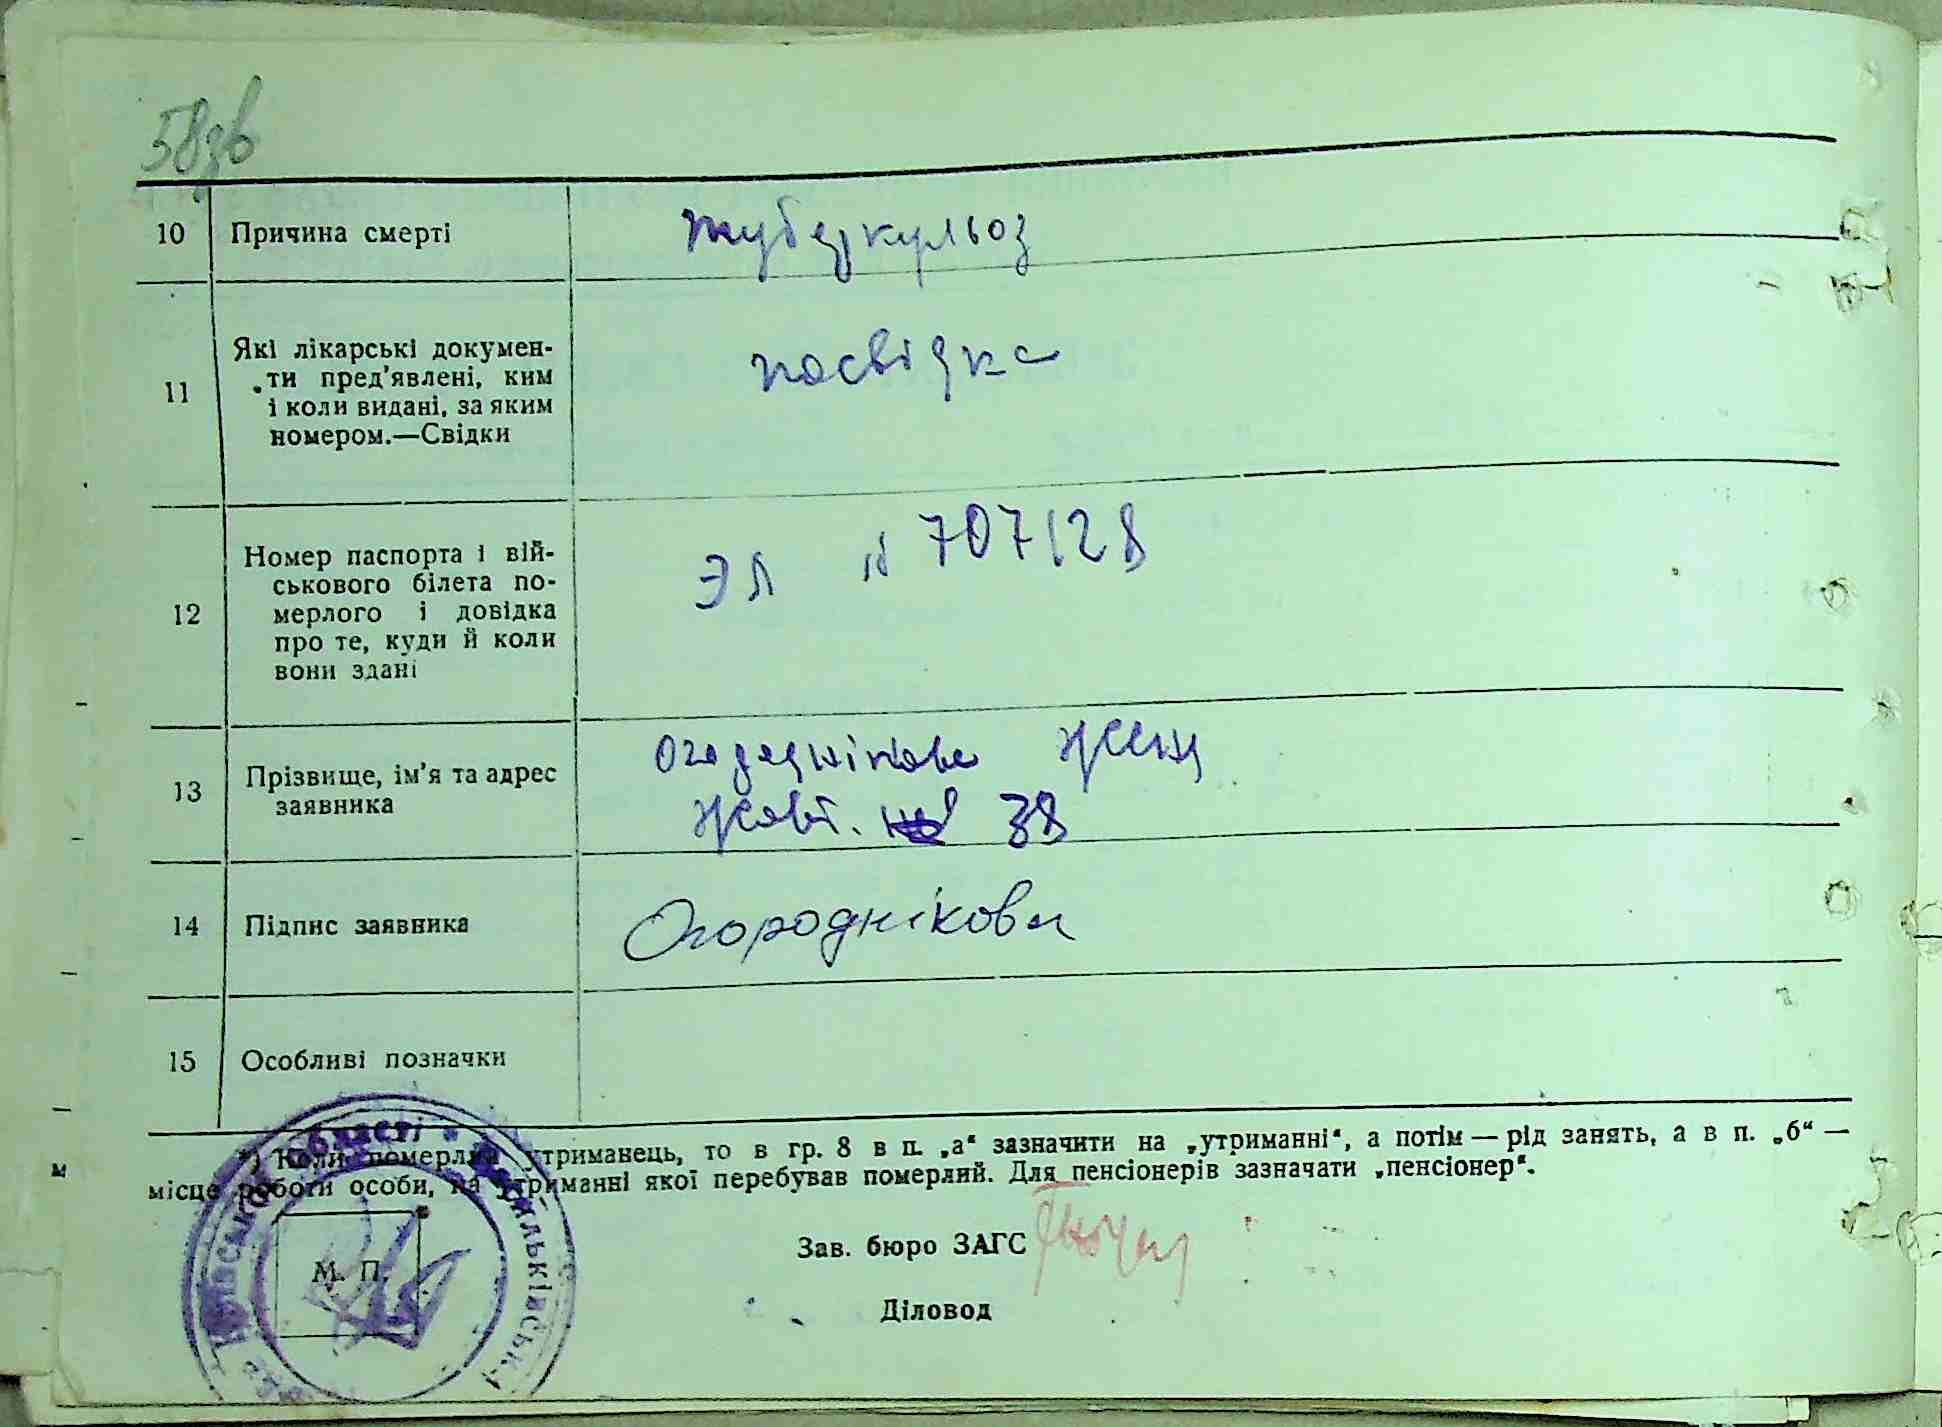 58зв
10 Причина смерті туберкульоз
11 Які лікарські докумен-
ти пред'явлені, ким
і коли видані, за яким
номером.—Свідки
посвідка
12 Номер паспорта і вій-
ськового білета по-
мерлого і довідка
про те, куди й коли
вони здані
ЭЛ № 707128
13 Прізвище, ім'я та адрес
заявника
Огороднікова
Жовт. 38
14 Підпис заявника Огороднікова
15 Особливі позначки
*) Коли померлий утриманець, то в гр. 8 в п. „а“ зазначити на „утриманні“, а потім — рід занять, а в п. „б“ —
місце роботи особи, на утриманні якої перебував померлий. Для пенсіонерів зазначати „пенсіонер“.
області
М. П.
Зав. бюро ЗАГС
Діловод